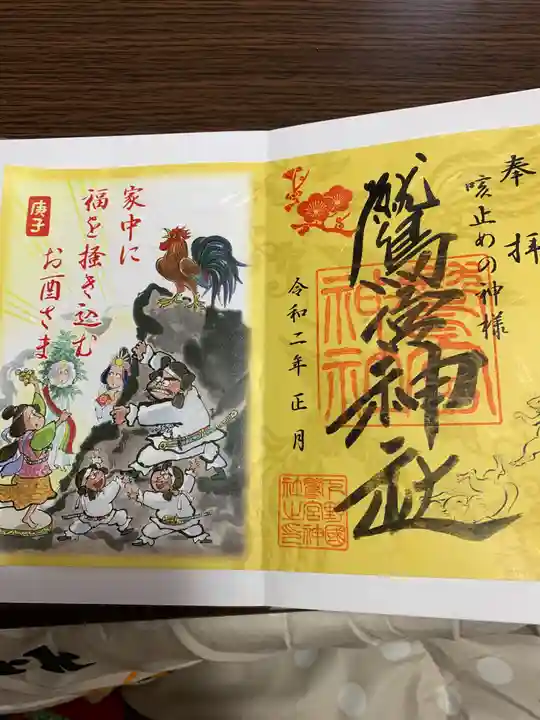 奉拝
咳止めの神様
鷲宮神社
鷲宮神社
令和二年正月
下野國
鷲宮神
社之印
家中に
福を掻き込む
お酉さま
庚子